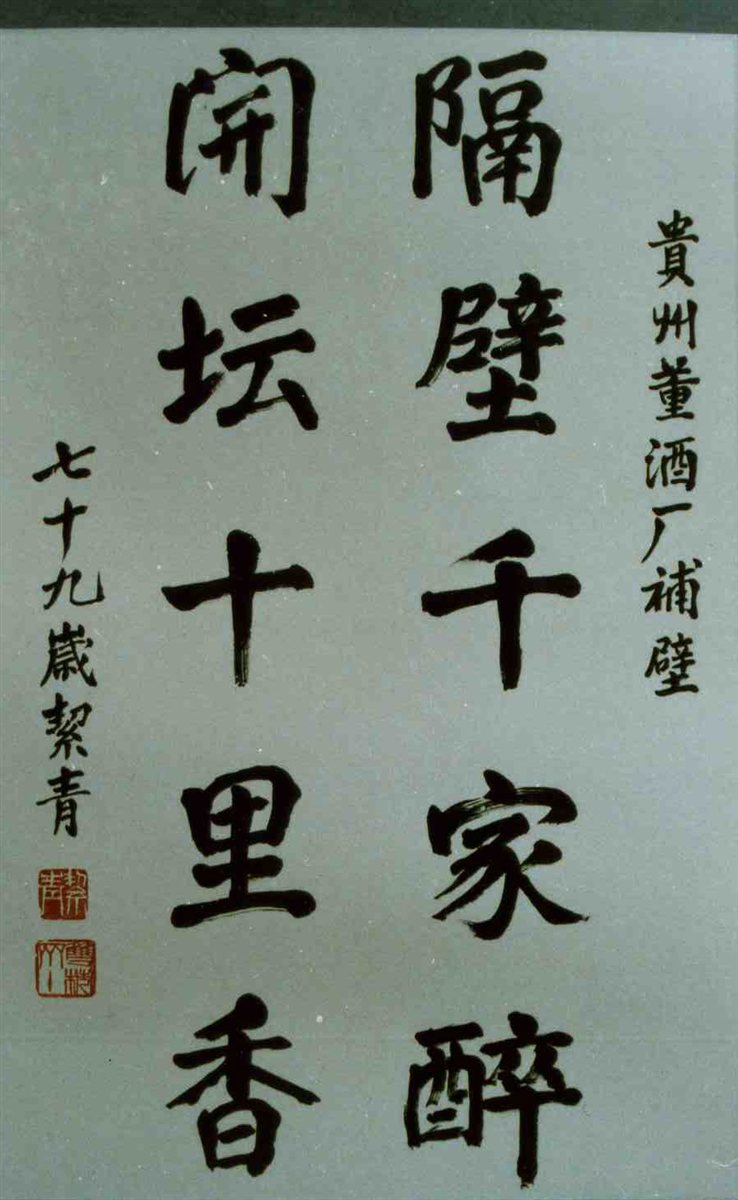 貴州董酒厂補壁
隔壁千家醉
開坛十里香
七十九歳絜青
絜青